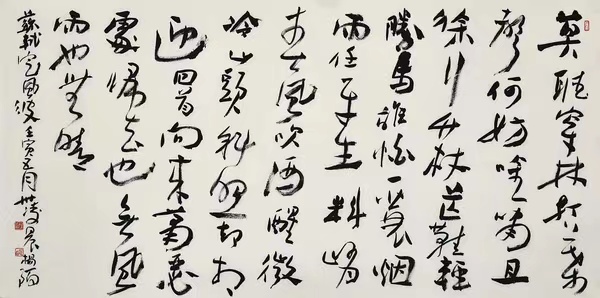 莫聽穿林打葉
聲何妨吟嘯且
徐行竹杖芒鞋輕
勝馬誰怕一蓑烟
雨任平生料峭
春風吹酒醒微
冷山頭斜照却相
迎回首向來蕭瑟
處歸去也無風
雨也無晴
蘇軾定風波壬寅五月